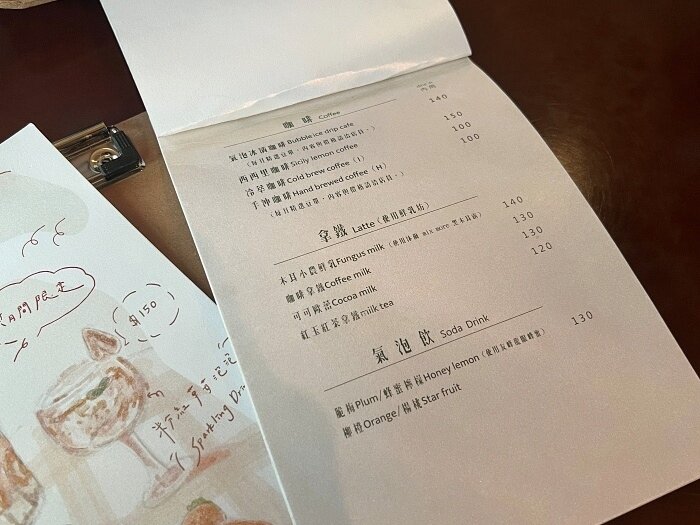 咖啡 Coffee
內用
氣泡冰滴咖啡 Bubble ice drip cafe 140
(每月精選豆單，內容與價格請洽店員。)
西西里咖啡 Sicily lemon coffee 150
冷萃咖啡 Cold brew coffee (I) 100
手沖咖啡 Hand brewed coffee (H) 100
(每月精選豆單，內容與價格請洽店員。)
拿鐵 Latte (使用鮮乳坊)
木耳小農鮮乳 Fungus milk (使用 mix more 黑木耳露) 140
咖啡拿鐵 Coffee milk 130
可可歐蕾 Cocoa milk 130
紅玉紅茶拿鐵 milk tea 120
氣泡飲 Soda Drink
脆梅 Plum/蜂蜜檸檬 Honey lemon (使用友蜂龍眼蜂蜜) 130
柳橙 Orange/楊桃 Star fruit
期間限定
$150
Sparkling